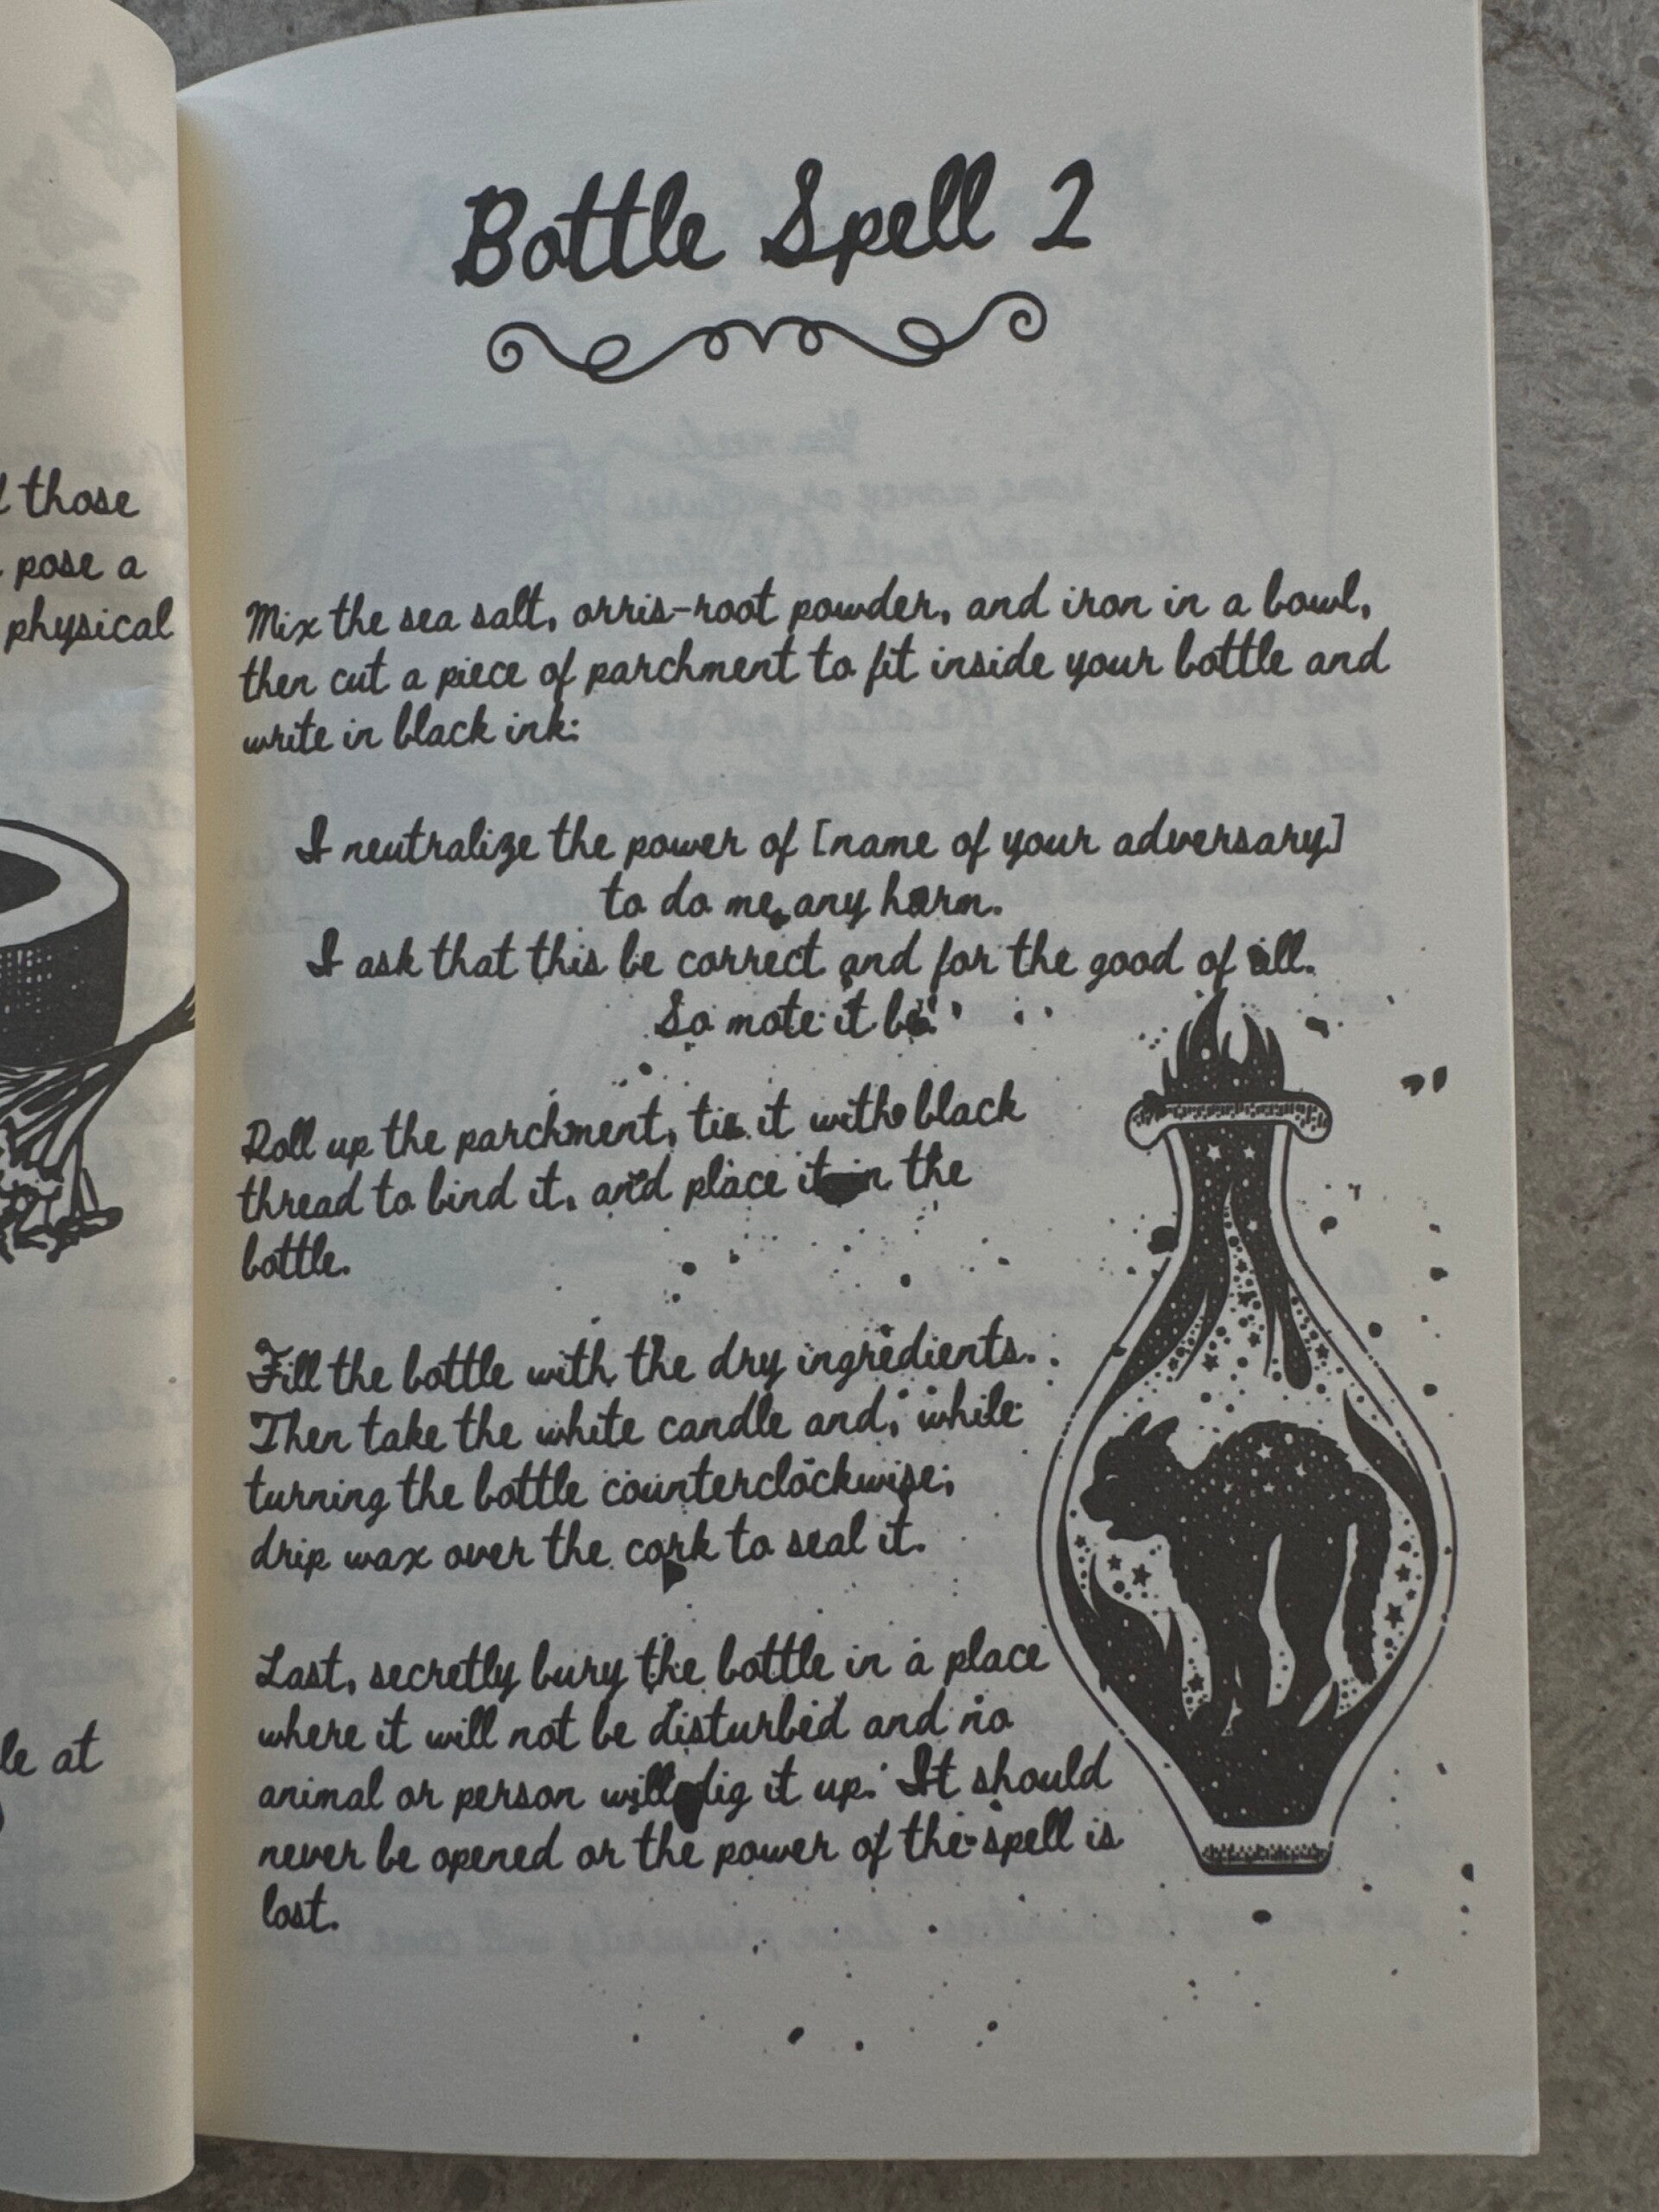 l those
pose a
physical
le at
Bottle Spell 2
Mix the sea salt, orris-root powder, and iron in a bowl,
then cut a piece of parchment to fit inside your bottle and
write in black ink:
I neutralize the power of [name of your adversary]
to do me any harm.
I ask that this be correct and for the good of all.
So mote it be.
Roll up the parchment, tie it with black
thread to bind it, and place it in the
bottle.
Fill the bottle with the dry ingredients.
Then take the white candle and, while
turning the bottle counterclockwise,
drip wax over the cork to seal it.
Last, secretly bury the bottle in a place
where it will not be disturbed and no
animal or person will dig it up. It should
never be opened or the power of the spell is
lost.